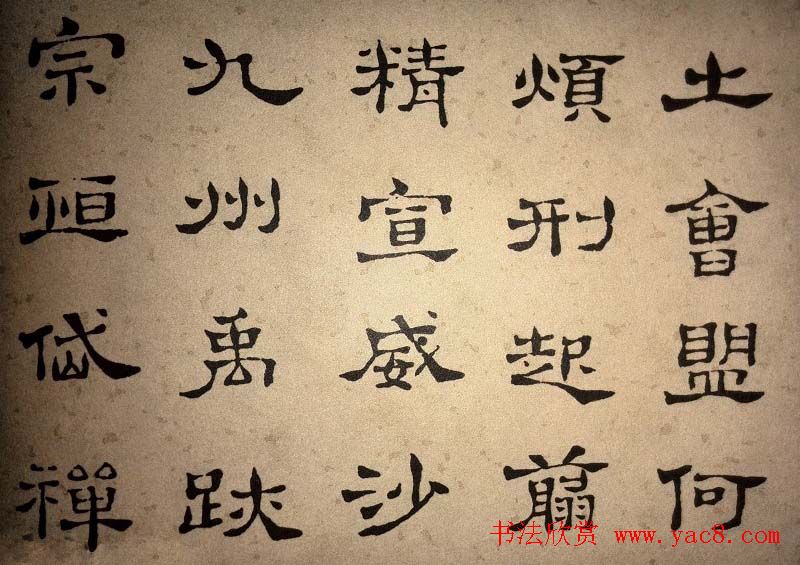 土會盟何
煩刑起翦
精宣威沙
九州禹跡
宗恒岱禪
书法欣赏 www.yac8.com